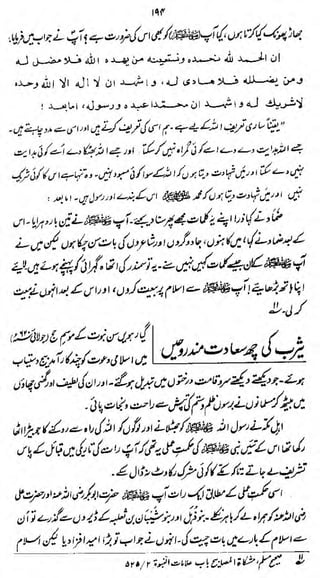 ۱۹۴
جھاڑ پھونک کیا کرتا ہوں، کیا آپ (ﷺ) کو بھی اس کی ضرورت ہے؟ آپ نے جواب میں فرمایا:
ان الحمد للہ نحمدہ ونستعینہ من یھدہ اللہ فلا مضل لہ
ومن یضللہ فلا ھادی لہ، و اشھد ان لا الہ الا اللہ وحدہ
لاشریک لہ و اشھد ان محمدا عبدہ ورسولہ، امابعد!
"یقیناً ساری تعریف اللہ کے لیے ہے۔ ہم اسی کی تعریف کرتے ہیں اور اسی سے مدد چاہتے ہیں۔
جسے اللہ ہدایت دے دے اسے کوئی گمراہ نہیں کر سکتا اور جسے اللہ بھٹکا دے اسے کوئی ہدایت
نہیں دے سکتا اور میں شہادت دیتا ہوں کہ اللہ کے سوا کوئی معبود نہیں۔ وہ تنہا ہے اس کا کوئی شریک
نہیں اور میں شہادت دیتا ہوں کہ محمد ﷺ اس کے بندے اور رسول ہیں۔ اما بعد:
ضماد نے کہا ذرا اپنے یہ کلمات مجھے پھر سنا دیجئے۔ آپ ﷺ نے تین بار دہرایا۔ اس
کے بعد ضماد نے کہا، میں کاہنوں، جادوگروں اور شاعروں کی بات سن چکا ہوں لیکن میں نے
آپ ﷺ کے ان جیسے کلمات کہیں نہیں سنے۔ یہ تو سمندر کی اتھاہ گہرائی کو پہنچے ہوئے ہیں۔ لائیے
اپنا ہاتھ بڑھائیے! آپ ﷺ سے اسلام پر بیعت کروں، اور اس کے بعد انہوں نے بیعت
کر لی۔ ۱۱
یثرب کی چھ سعادت مند روحیں
گیارہویں سن نبوت کے موسم حج (جولائی ۶۲۰ء)
میں اسلامی دعوت کو چند کارآمد بیج دستیاب
ہوئے۔ جو دیکھتے دیکھتے سرو قامت درختوں میں تبدیل ہو گئے۔ اور ان کی لطیف اور گھنی چھاؤں
میں بیٹھ کر مسلمانوں نے برسوں ظلم و ستم کی تپش سے راحت و نجات پائی۔
اہل مکہ نے رسول اللہ ﷺ کو جھٹلانے اور لوگوں کو اللہ کی راہ سے روکنے کا جو بیڑا اٹھا
رکھا تھا اس کے تئیں نبی ﷺ کی حکمت عملی یہ تھی کہ آپ رات کی تاریکی میں قبائل کے پاس
تشریف لے جاتے تاکہ مکے کا کوئی مشرک رکاوٹ نہ ڈال سکے۔
اسی حکمت عملی کے مطابق ایک رات آپ ﷺ حضرت ابوبکر رضی اللہ عنہ اور حضرت علی
رضی اللہ عنہ کو ہمراہ لے کر باہر نکلے۔ بنو ذہل اور بنو شیبان بن ثعلبہ کے ڈیروں سے گذرے تو ان
سے اسلام کے بارے میں بات چیت کی۔ انہوں نے جواب تو بڑا امید افزا دیا لیکن اسلام
۱۱ صحیح مسلم، مشکاۃ المصابیح باب علامات النبوۃ ۲/ ۵۲۵